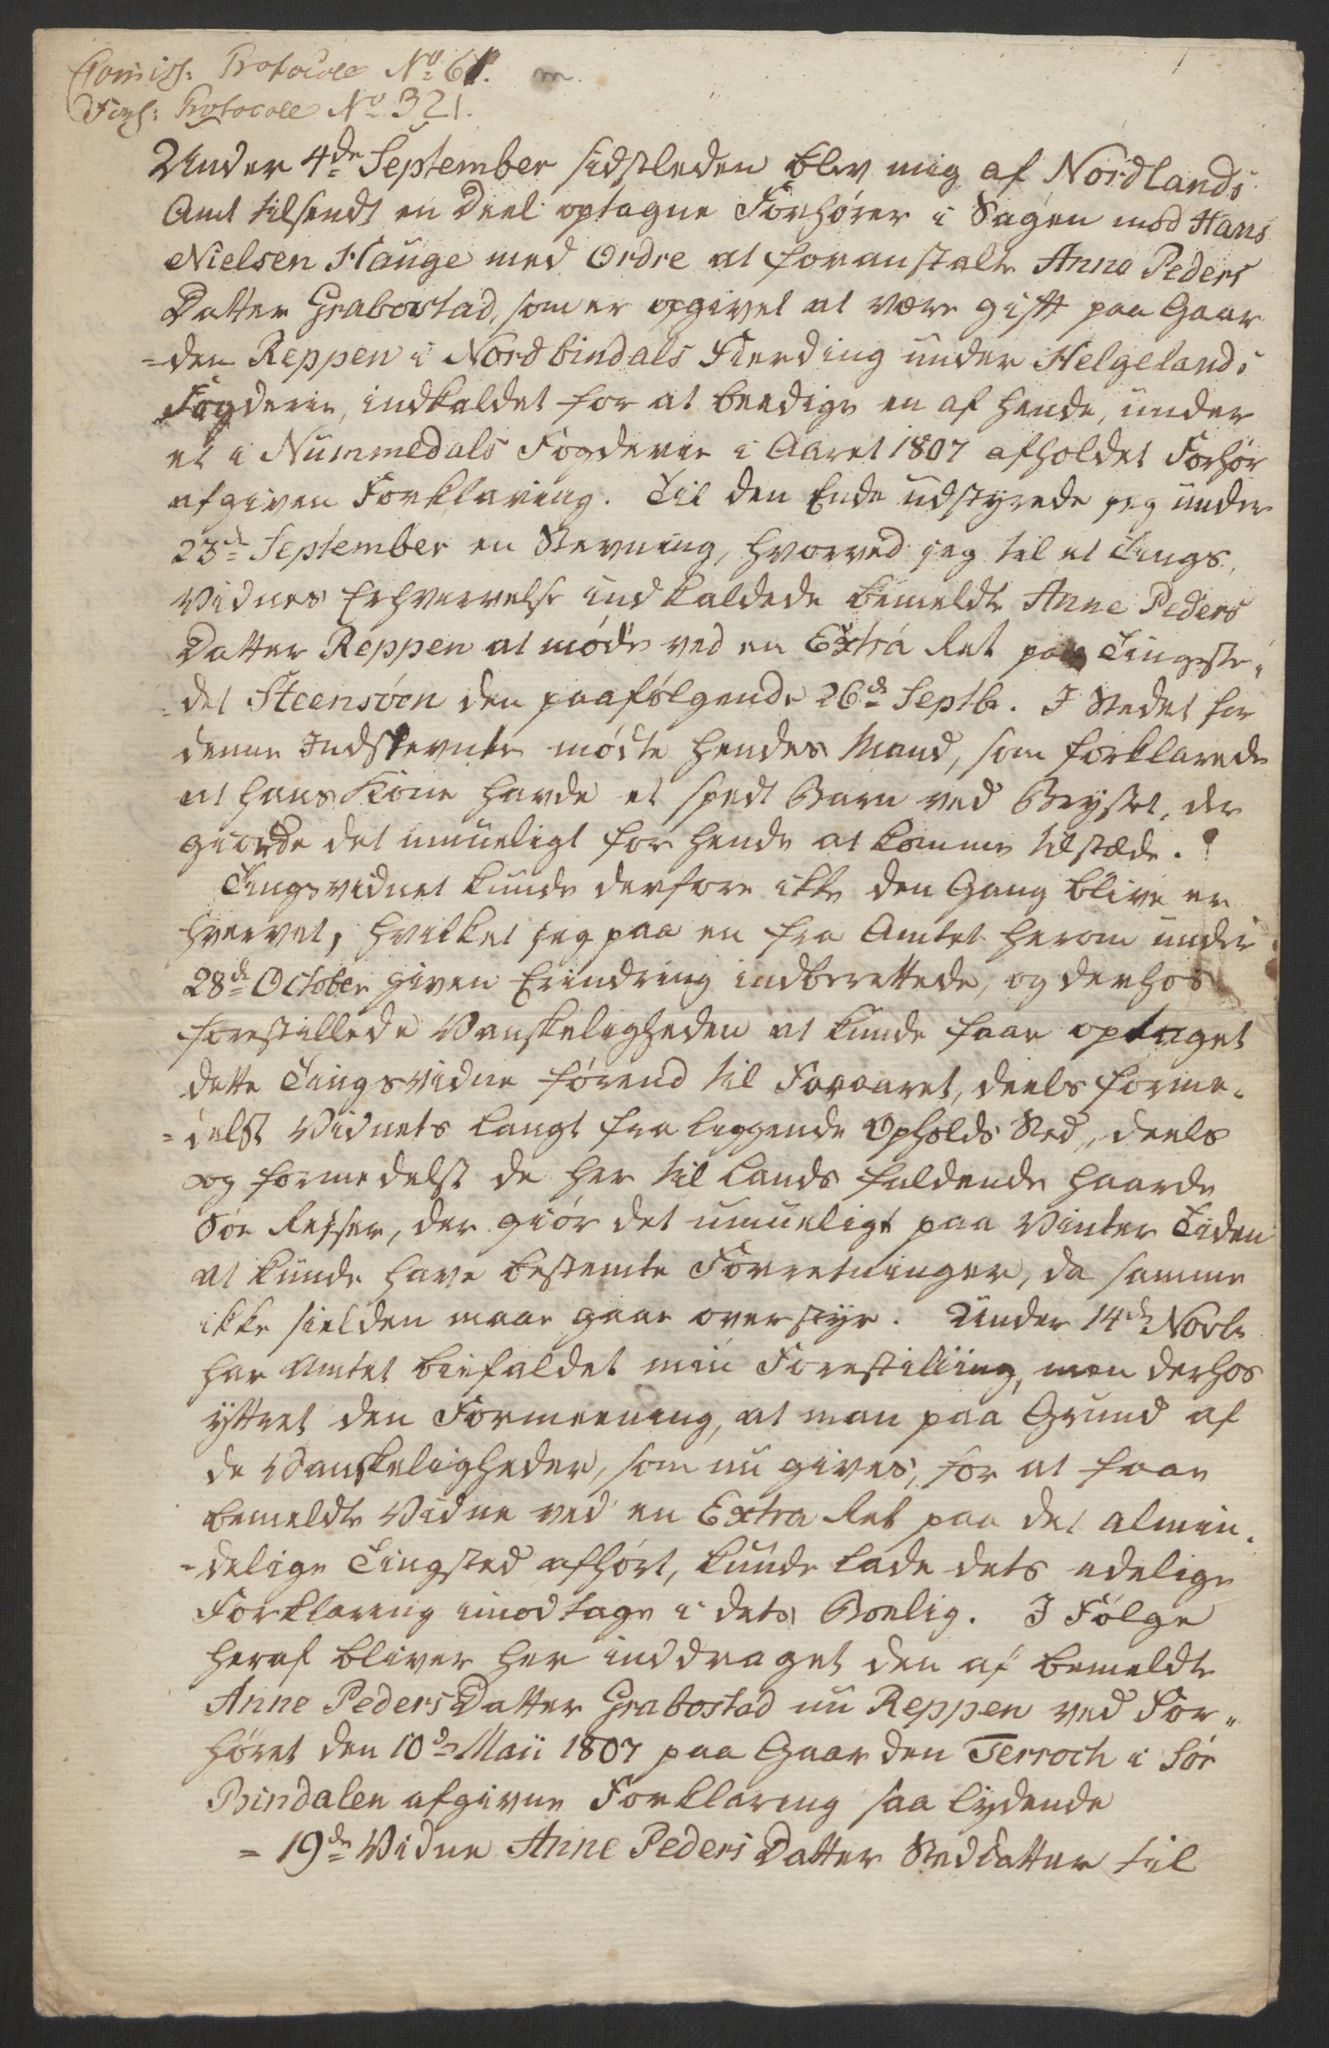 Comiss: Protocole No 61. m.
Forh: Protocole No 321.
Under 4de September sidstleden blev mig af Nordlands
Amt tilsendt en Deel optagne Forhører i Sagen mod Hans
Nielsen Hauge med Ordre at foranstalte Anne Peders
Datter Grabostad, som er opgivet at være gift paa Gaar
-den Reppen i Nordbindals Fierding under Helgelands
Fogderie, indkaldet for at beedige en af hende, under
et i Nummedals Fogderie i Aaret 1807 afholdet Forhør
afgiven Forklaring. Til den Ende udstyrede jeg under
23de September en Stevning, hvorved jeg til et Tings
Vidnes Erhvervelse indkaldede bemeldte Anne Peders
Datter Reppen at møde ved en Extra Ret paa Tingste-
-det Steensøen den paafølgende 26de Septbr. I Stedet for
denne Indstevnte mødte hendes Mand, som forklarede
at hans Kone havde et spedt Barn ved Brystet, der
giorde det umueligt for hende at komme tilstæde.
Tingsvidnet kunde derfore ikke den Gang blive er
hvervet, hvilket jeg paa en fra Amtet herom under
28de October given Erindring indberettede, og derhos
forestillede Vanskeligheden at kunde faae optaget
dette Tingsvidne førend til Foraaret, deels forme-
-delst Vidnets langt fra liggende Opholds Sted, deels
og formedelst de her til Lands faldende haarde
Søe Reiser, der giør det umueligt paa Vinter Tiden
at kunde have bestemte Forretninger, da samme
ikke sielden maae gaae overstyr. Under 14de Novbr
har Amtet biefaldet min Forestilling, men derhos
yttret den Formeening, at man paa Grund af
de Vanskeligheder, som nu gives, for at faae
bemeldte Vidne ved en Extra Ret paa det almin-
-delige Tingsted afhørt, kunde lade dets edelige
Forklaring imodtage i dets Boelig. I Følge
heraf bliver her inddraget den af bemeldte
Anne Peders Datter Grabostad nu Reppen ved For-
høret den 10de Maii 1807 paa Gaarden Terroch i Sør
Bindalen afgivne Forklaring saa lydende
- 19de Vidne Anne Peders Datter Steddatter til